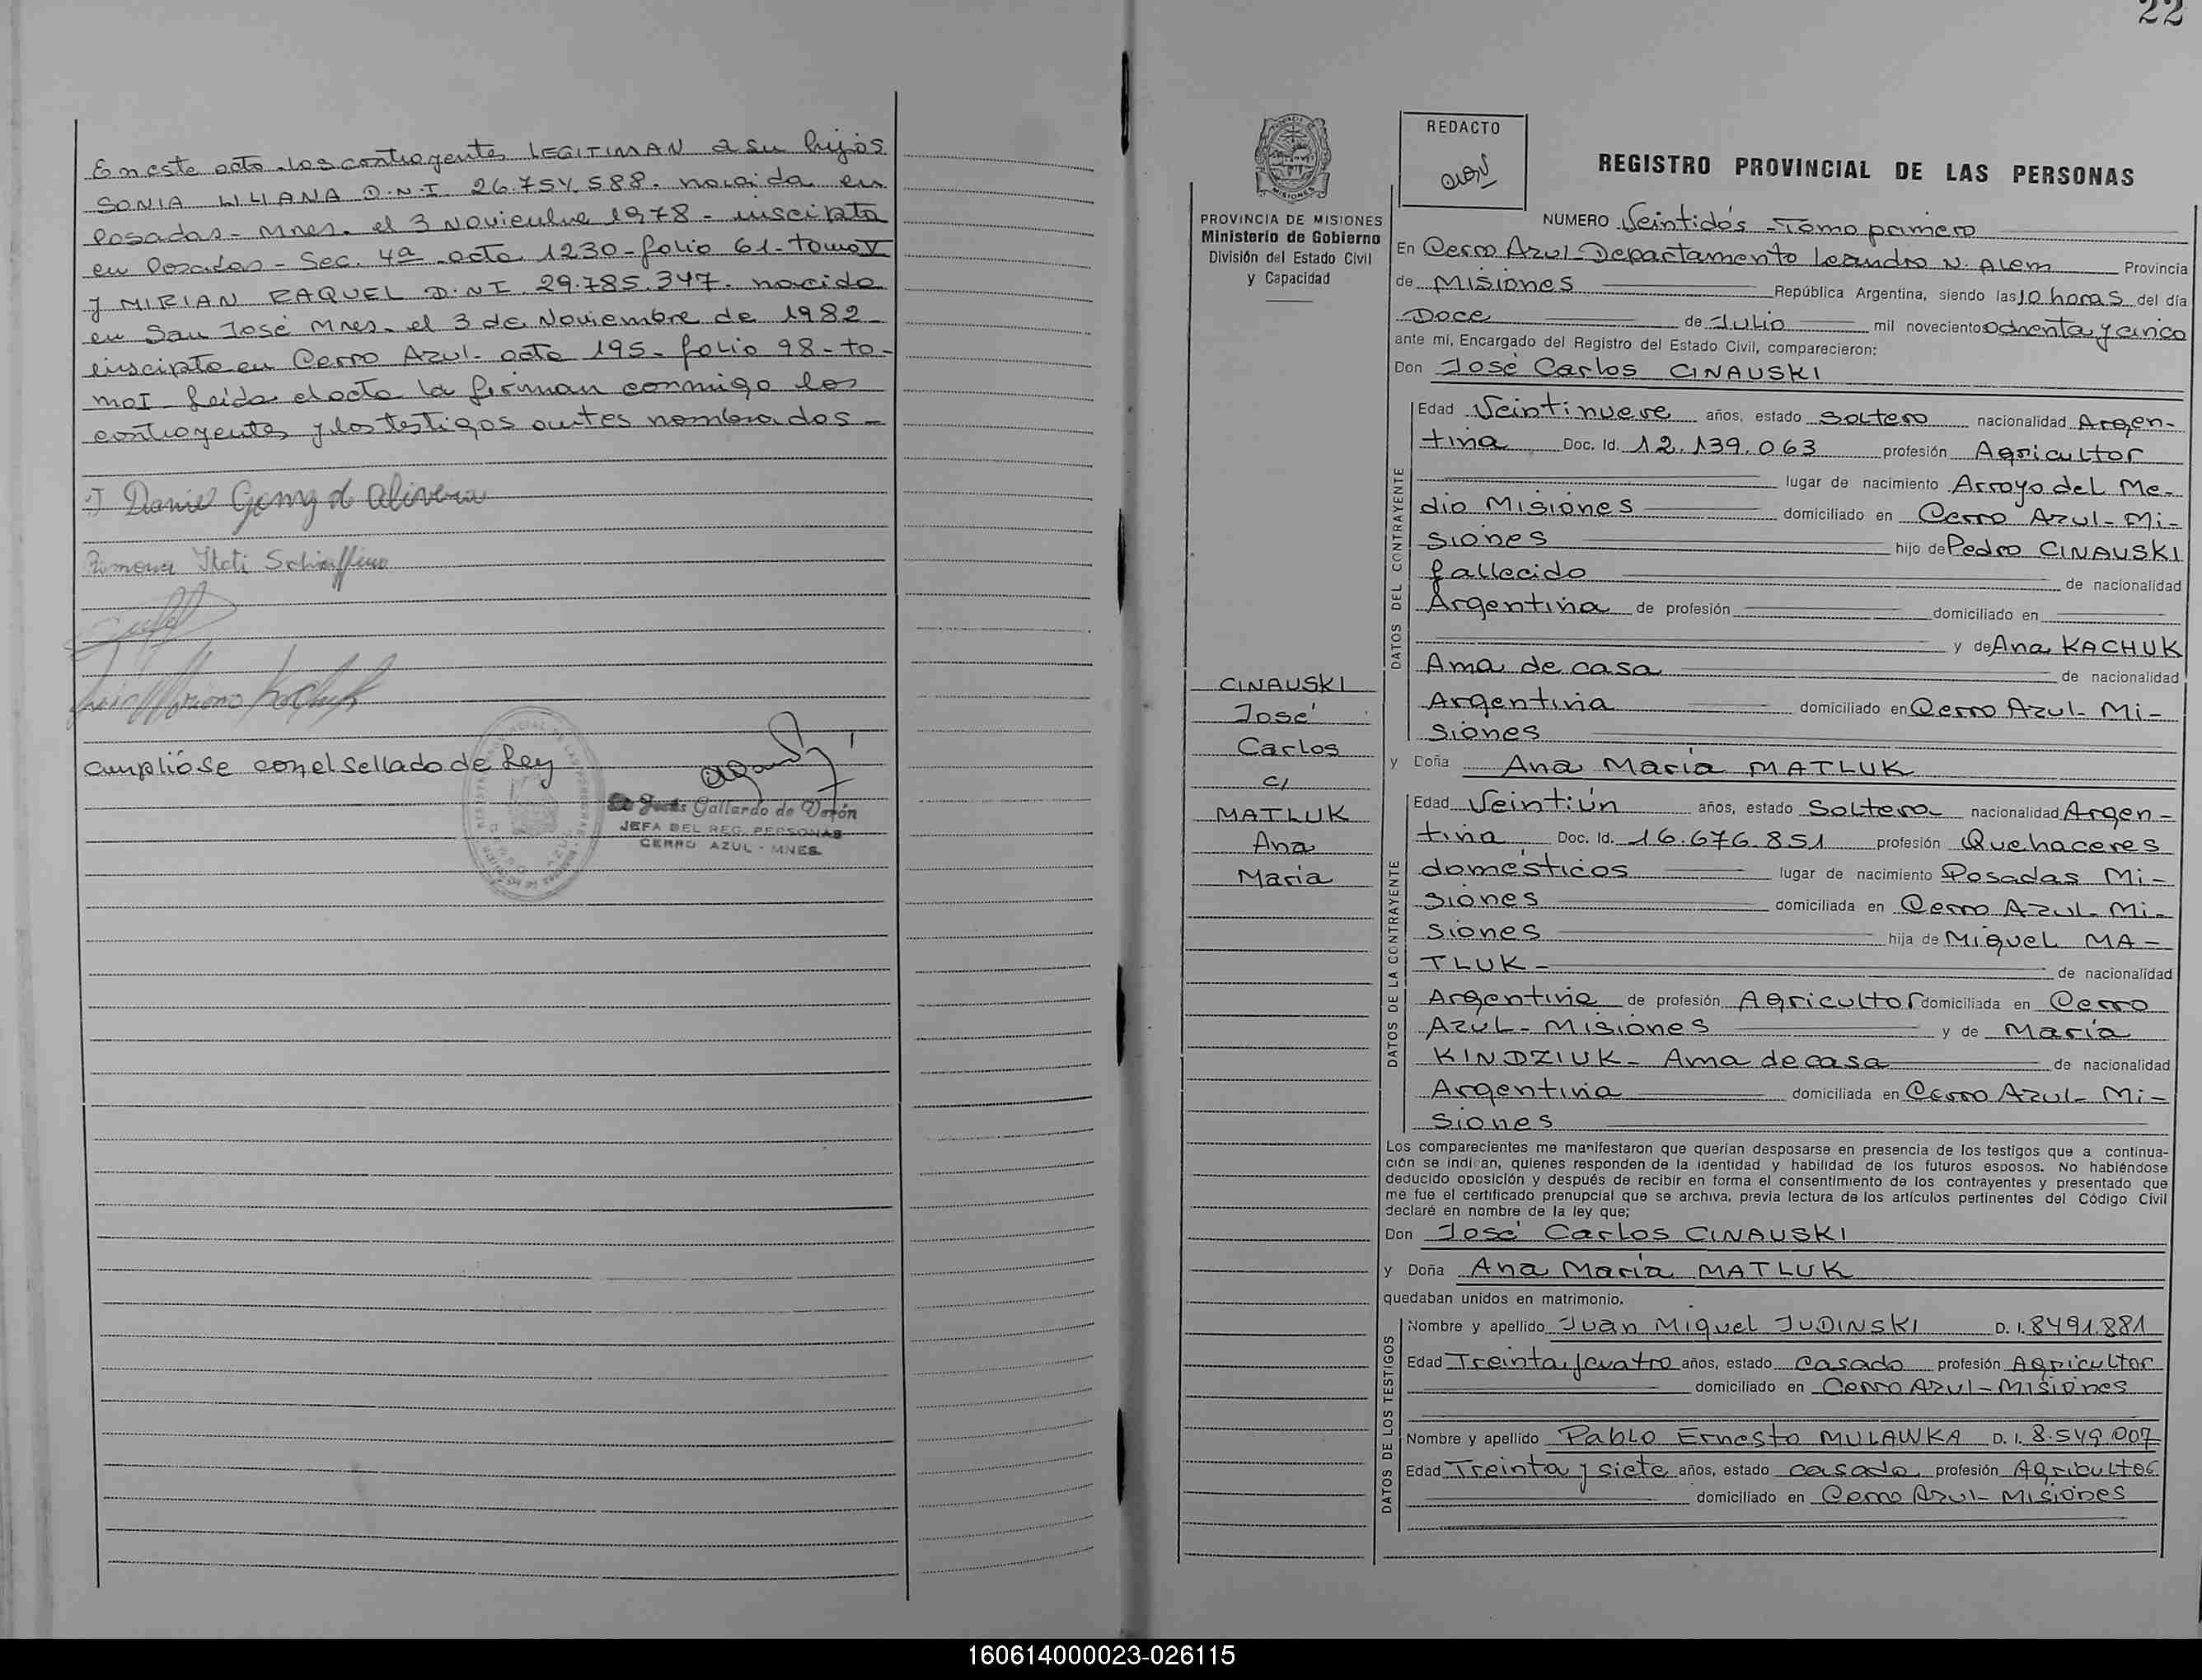 En este acto los contrayentes LEGITIMAN a su hijos
SONIA LILIANA D.N.I. 26.754.588. nacida en
Posadas - Mnes. el 3 Noviembre 1978 - inscripta
en Posadas - Sec. 4ª acta 1230 - folio 61 - tomo V
y MIRIAN RAQUEL D.N.I. 29.785.347. nacida
en San José Mnes. el 3 de Noviembre de 1982 -
inscipta en Cerro Azul - acta 195 - folio 98 - to-
mo I - leida el acta la firman conmigo los
contrayentes y los testigos antes nombrados -
Ramona Itati Schiaffino
Cumplióse con el sellado de Ley
Gallardo de Verón
JEFA DEL REG. PERSONAS
CERRO AZUL - MNES.
22
PROVINCIA DE MISIONES
Ministerio de Gobierno
División del Estado Civil
y Capacidad
CINAUSKI
José
Carlos
c/
MATLUK
Ana
María
REDACTO
REGISTRO PROVINCIAL DE LAS PERSONAS
NUMERO Veintidós - Tomo primero
En Cerro Azul - Departamento Leandro N. Alem Provincia
de Misiones República Argentina, siendo las 10 horas del día
Doce de Julio mil novecientos ochenta y cinco
ante mí, Encargado del Registro del Estado Civil, comparecieron:
Don José Carlos CINAUSKI
DATOS DEL CONTRAYENTE
Edad Veintinueve años, estado Soltero nacionalidad Argen-
tina Doc. Id. 12.139.063 profesión Agricultor
lugar de nacimiento Arroyo del Me-
dio Misiones domiciliado en Cerro Azul - Mi-
siones hijo de Pedro CINAUSKI
fallecido de nacionalidad
Argentina de profesión domiciliado en
y de Ana KACHUK
Ama de casa de nacionalidad
Argentina domiciliado en Cerro Azul - Mi-
siones
y Doña Ana María MATLUK
DATOS DE LA CONTRAYENTE
Edad Veintiún años, estado Soltera nacionalidad Argen-
tina Doc. Id. 16.676.851 profesión Quehaceres
domésticos lugar de nacimiento Posadas Mi-
siones domiciliada en Cerro Azul - Mi-
siones hija de Miguel MA-
TLUK - de nacionalidad
Argentina de profesión Agricultor domiciliada en Cerro
Azul - Misiones y de María
KINDZIUK - Ama de casa de nacionalidad
Argentina domiciliada en Cerro Azul - Mi-
siones
Los comparecientes me manifestaron que querían desposarse en presencia de los testigos que a continua-
ción se indican, quienes responden de la identidad y habilidad de los futuros esposos. No habiéndose
deducido oposición y después de recibir en forma el consentimiento de los contrayentes y presentado que
me fue el certificado prenupcial que se archiva, previa lectura de los artículos pertinentes del Código Civil
declaré en nombre de la ley que;
Don José Carlos CINAUSKI
y Doña Ana María MATLUK
quedaban unidos en matrimonio.
DATOS DE LOS TESTIGOS
Nombre y apellido Juan Miguel JUDINSKI D. I. 8491.881
Edad Treinta y cuatro años, estado casado profesión Agricultor
domiciliado en Cerro Azul - Misiones
Nombre y apellido Pablo Ernesto MULAWKA D. I. 8.549.007
Edad Treinta y siete años, estado casado profesión Agricultor
domiciliado en Cerro Azul - Misiones
160614000023-026115